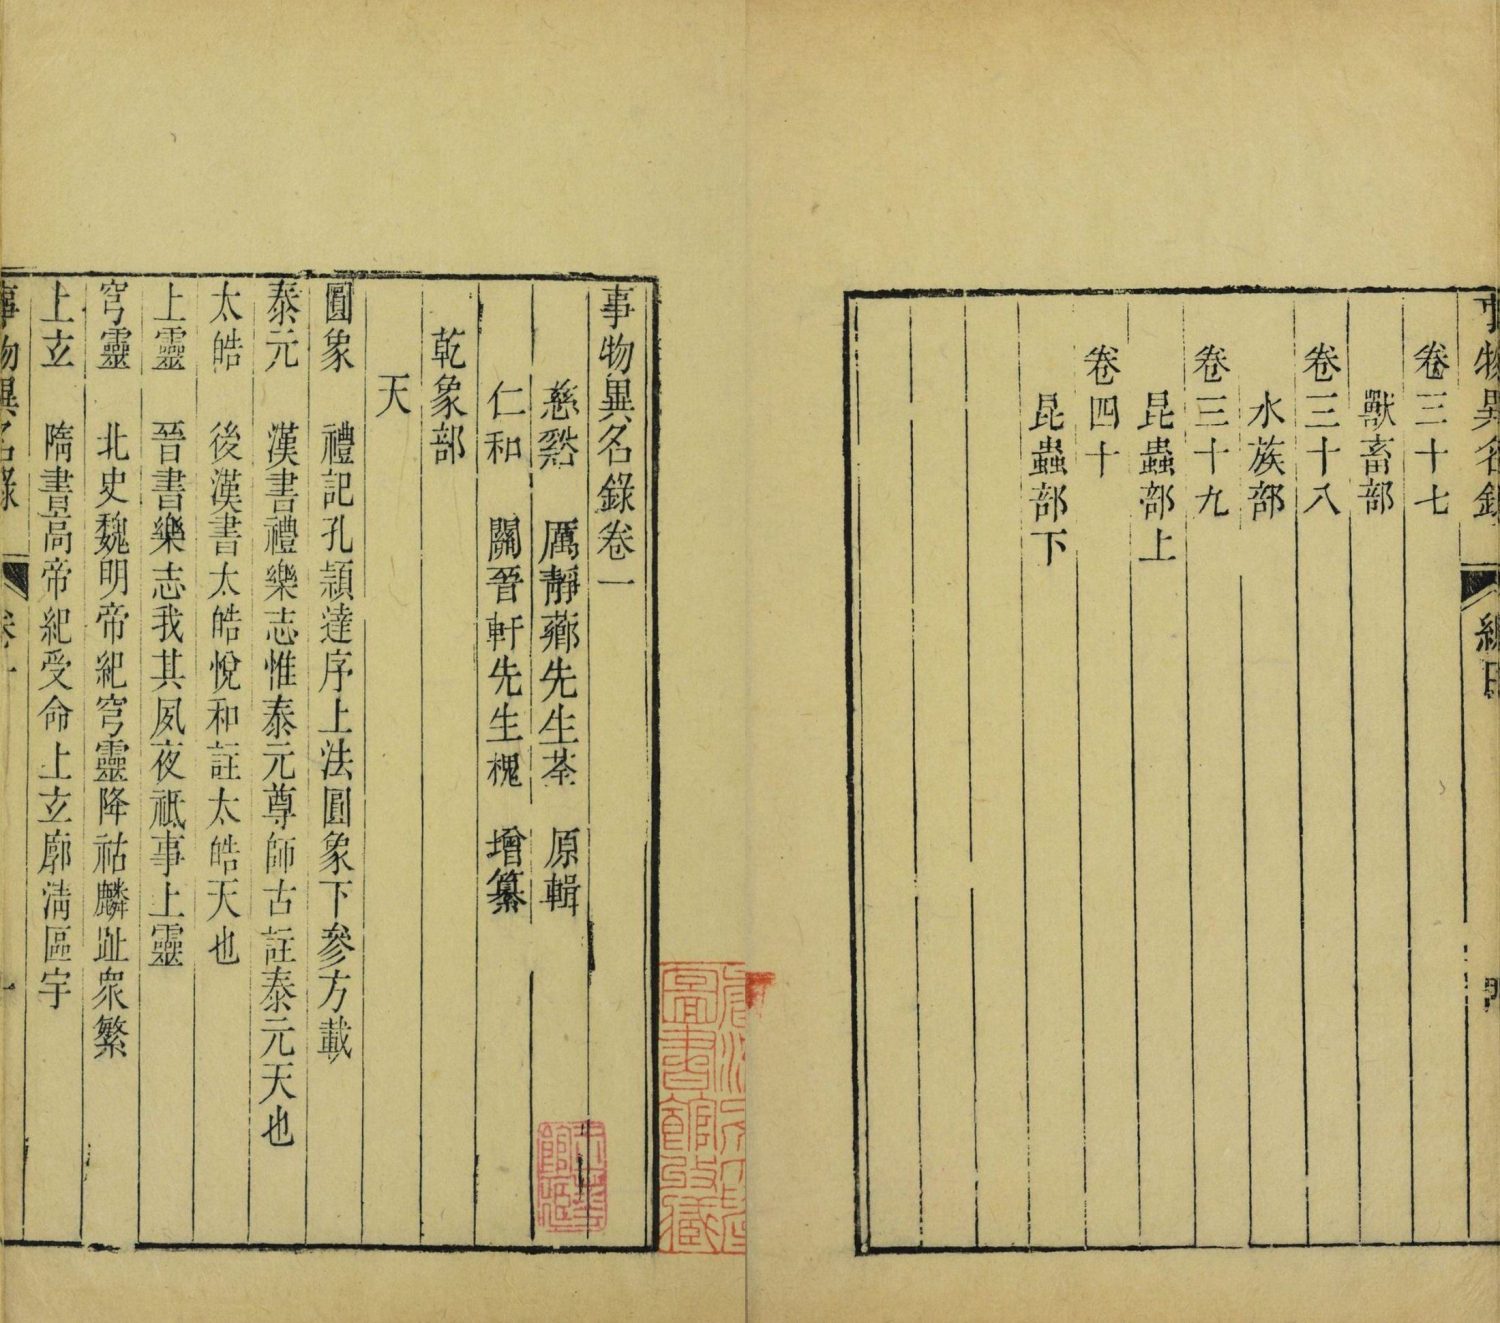 事物異名錄
總目
卷三十七
獸畜部
卷三十八
水族部
卷三十九
昆蟲部上
卷四十
昆蟲部下
事物異名錄卷一
慈谿 厲靜薌先生荃 原輯
仁和 關晉軒先生槐 增纂
乾象部
天
圓象 禮記孔穎達序上法圓象下參方載
泰元 漢書禮樂志惟泰元尊師古註泰元天也
太皓 後漢書太皓悅和註太皓天也
上靈 晉書樂志我其夙夜祗事上靈
穹靈 北史魏明帝紀穹靈降祐麟趾衆繁
上玄 隋書高帝紀受命上玄廓淸區宇
事物異名錄
卷一
一